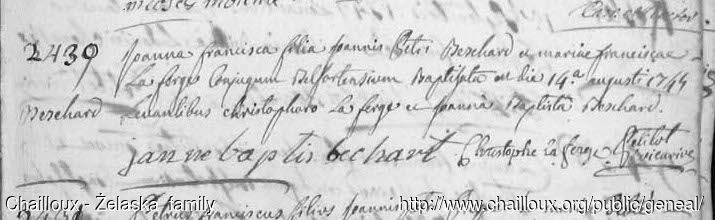 2439
Joanna francisca filia Joannis Petri Berchard et mariae franciscae
La forge Conjugum Belfortensium Baptisata est die 14.a augusti 1744
Berchard
Levantibus christophoro La forge et Joanna Baptista Berchard.
janne baptis bechart
Christophe la forge
vicarius
Petrus franciscus filius Joannis
Chailloux - Żelaska family
http://www.chailloux.org/public/geneal/